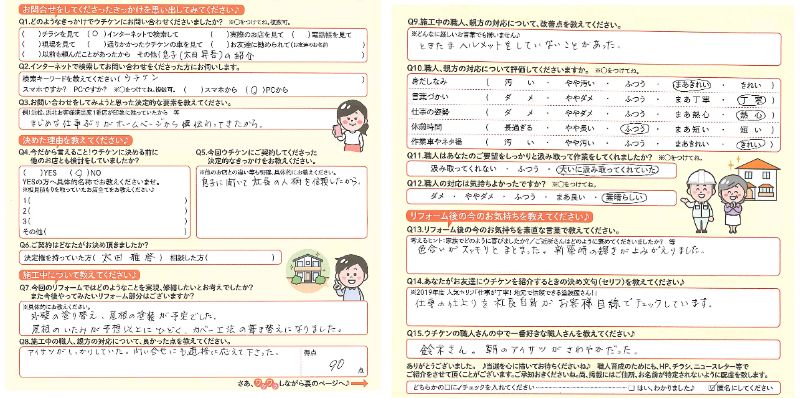 お問合せをしてくださったきっかけを思い出してみて♪
Q1.どのようなきっかけでウチケンにお問い合わせくださいましたか? ※○をつけてね。複数可。
( )チラシを見て (○)インターネットで検索して ( )実際のお店を見て ( )電話帳を見て
( )現場を見て ( )通りかかったウチケンの車を見て ( )お友達に勧められて(お友達のお名前)
( )以前も頼んだことがあったから その他( の紹介
Q2.インターネットで検索してお問い合わせくださった方にお伺いします。
検索キーワードを教えてください( ウチケン
スマホですか? PCですか? ※○をつけてね。複数可。( )スマホから (○)PCから
Q3.お問い合わせをしてみようと思った決定的な要素を教えてください。
まじめな仕事ぶりがホームページから伝わってきたから。
決めた理由を教えてください♪
Q4.今だから言えること!ウチケンに決める前に
他のお店とも検討をしていましたか?
( )YES (○)NO
YESの方へ具体的名称でお教えくださいませ。
1( )
2( )
3( )
その他( )
Q5.今回ウチケンにご契約してくださった
決定的なきっかけをお教えください。
※他のお店との違い等も明確、具体的にお教えください。
息子に聞いて社長の人柄を信頼したから。
Q6.ご契約はどなたがお決め頂きましたか?
決定権を持っていた方( ) 相談した方( )
施工中について教えてください♪
Q7.今回のリフォームではどのようなことを実現、修繕したいとお考えでしたか?
また今後やってみたいリフォーム部分はございますか?
※具体的にお教えください。
外壁の塗り替え、屋根の塗装が予定でした。
屋根のいたみが予想以上にひどく、カバー工法の葺き替えになりました。
Q8.施工中の職人、親方の対応について、良かった点を教えてください。
アイサツがしっかりしていた。問い合せにも適格に応えて下さった。
得点
90 点
さあ、ワクワクしながら裏のページへ♪
Q9.施工中の職人、親方の対応について、改善点を教えてください。
※どんなに厳しいお言葉でも構いません♪
ときたまヘルメットをしていないことがあった。
Q10.職人、親方の対応について評価してくださいますか。 ※○をつけてね。
身だしなみ ( 汚い ・ やや汚い ・ ふつう ・ まあきれい ・ きれい )
言葉づかい ( ダメ ・ ややダメ ・ ふつう ・ まあ丁寧 ・ 丁寧 )
仕事の姿勢 ( ダメ ・ ややダメ ・ ふつう ・ まあ熱心 ・ 熱心 )
休憩時間 ( 長過ぎる ・ やや長い ・ ふつう ・ まあ短い ・ 短い )
作業車やネタ場 ( 汚い ・ やや汚い ・ ふつう ・ まあきれい ・ きれい )
Q11.職人はあなたのご要望をしっかりと汲み取って作業をしてくれましたか? ※○をつけてね。
汲み取ってくれない ・ ふつう ・ 大いに汲み取ってくれていた
Q12.職人の対応は気持ちよかったですか? ※○をつけてね。
ダメ ・ ややダメ ・ ふつう ・ まあ良い ・ 素晴らしい
リフォーム後の今のお気持ちを教えてください♪
Q13.リフォーム後の今のお気持ちを素直な言葉で教えてください。
考えるヒント:家族でどのように喜びましたか?/ご近所さんはどのように褒めてくださいましたか? 等
色合いがスッキリとまとまった。新築時の輝きがよみがえりました。
Q14.あなたがお友達にウチケンを紹介するときの決め文句(セリフ)を教えてください。
仕事の仕上りを社長自身がお客様目線でチェックしています。
Q15.ウチケンの職人さんの中で一番好きな職人さんを教えてください。
鈴木さん。朝のアイサツがさわやかだった。
ありがとうございました。♪当選を心に描いてお待ちくださいね♪ 職人育成のためにも、HP、チラシ、ニュースレター等で
ご紹介をさせて頂くことがございます。ご承知おきくださいね。尚、掲載にはご住所、お名前が特定されないように配慮を致します。
どちらかの□に✓チェックを入れてください ----- □はい、わかりました♪ ☑匿名にしてください